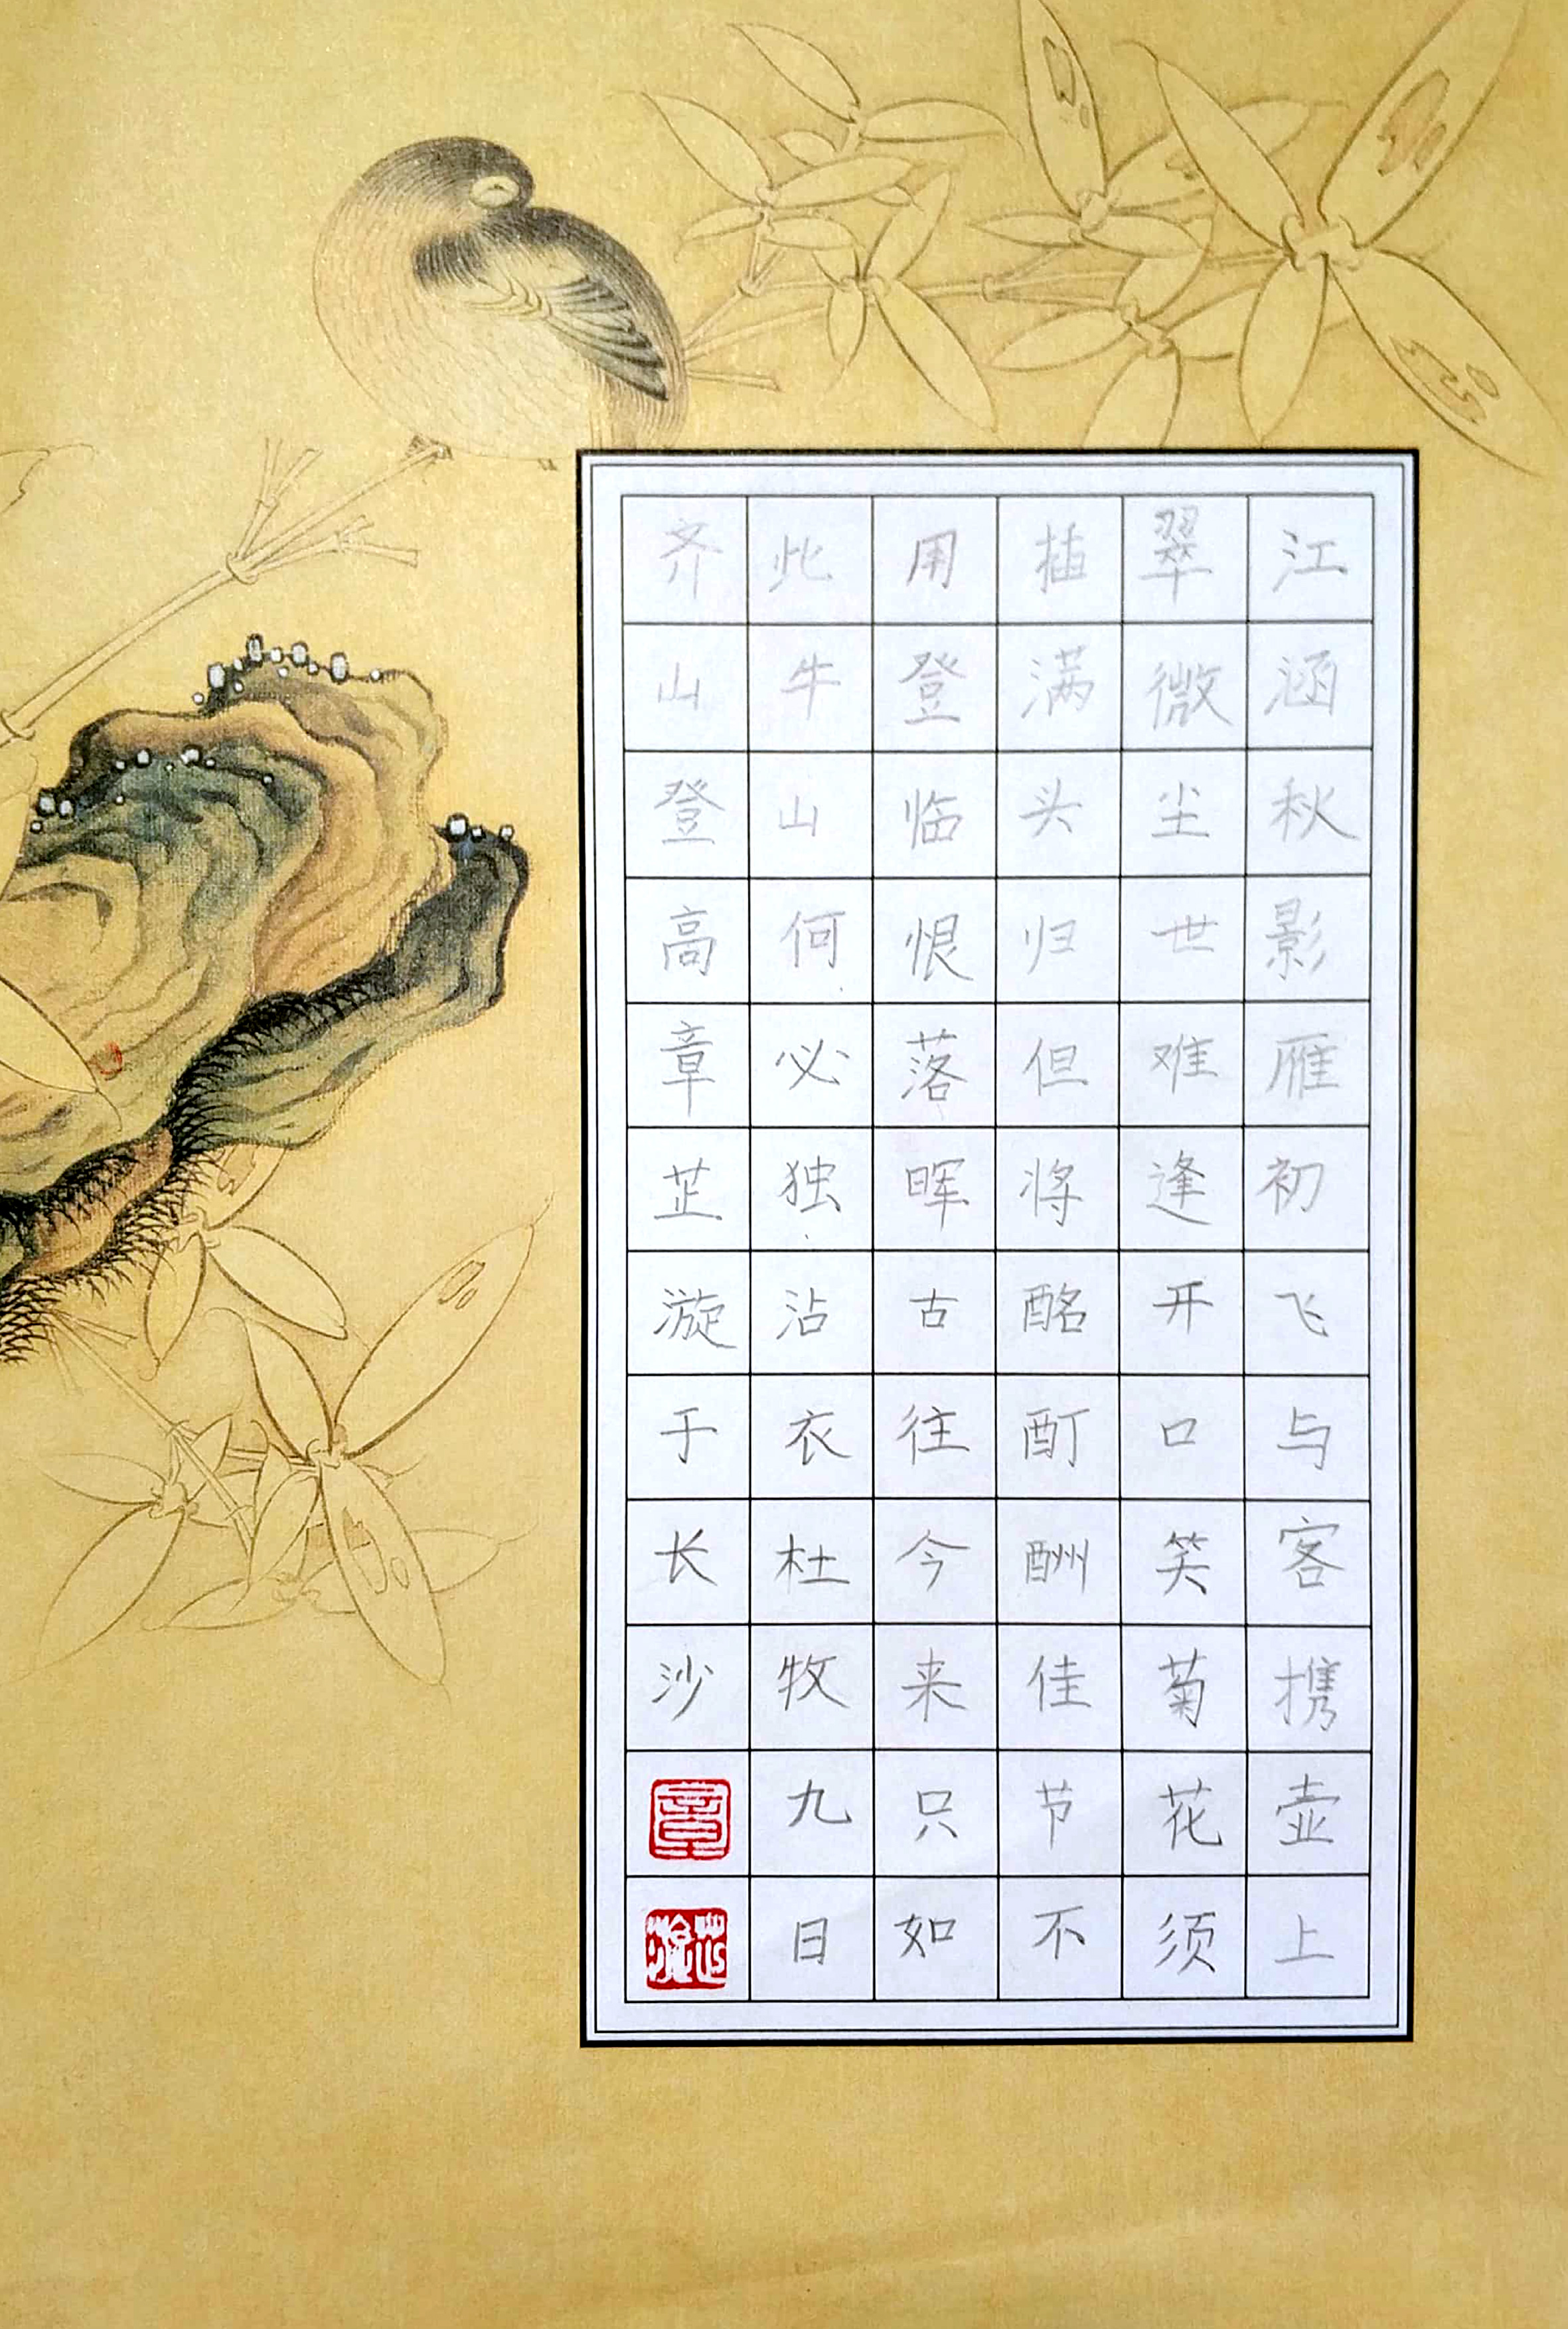 江涵秋影雁初飞与客携壶上
翠微尘世难逢开口笑菊花须
插满头归但将酩酊酬佳节不
用登临恨落晖古往今来只如
此牛山何必独沾衣杜牧九日
齐山登高章芷漩于长沙
章
芷漩